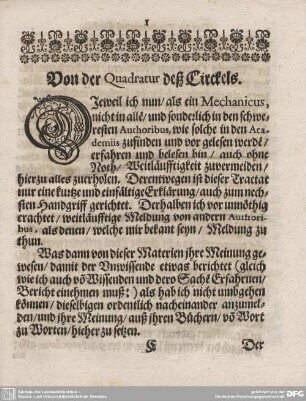 1
Von der Quadratur deß Circkels.
DJeweil ich nun/als ein Mechanicus,
nicht in allē/und sonderlich in den schwe-
resten Authoribus, wie solche in den Aca-
demiis zufinden und vor gelesen werdē/
erfahren und belesen bin/ auch ohne
Noth/ Weitläufftigkeit zuvermeiden/
hierzu alles zurholen. Derentwegen ist dieser Tractat
nur eine kurtze und einfältige Erklärung/ auch zum nech-
sten Handgriff gerichtet. Derhalben ich vor unnöthig
erachtet/ weitläufftige Meldung von andern Authori-
bus, als denen/ welche mir bekant seyn/ Meldung zu
thun.
Was dann von dieser Materien ihre Meinung ge-
wesen/ damit der Unwissende etwas berichtet (gleich
wie ich auch vō Wissenden und derer Sachē Erfahrnen/
Bericht einehmen muß:) als hab ich nicht umbgehen
können/ dieselbigen ordentlich nacheinander anzumel-
den/und ihre Meinung/ auß ihren Büchern/ vō Wort
zu Worten/ hieher zu setzen.
Der